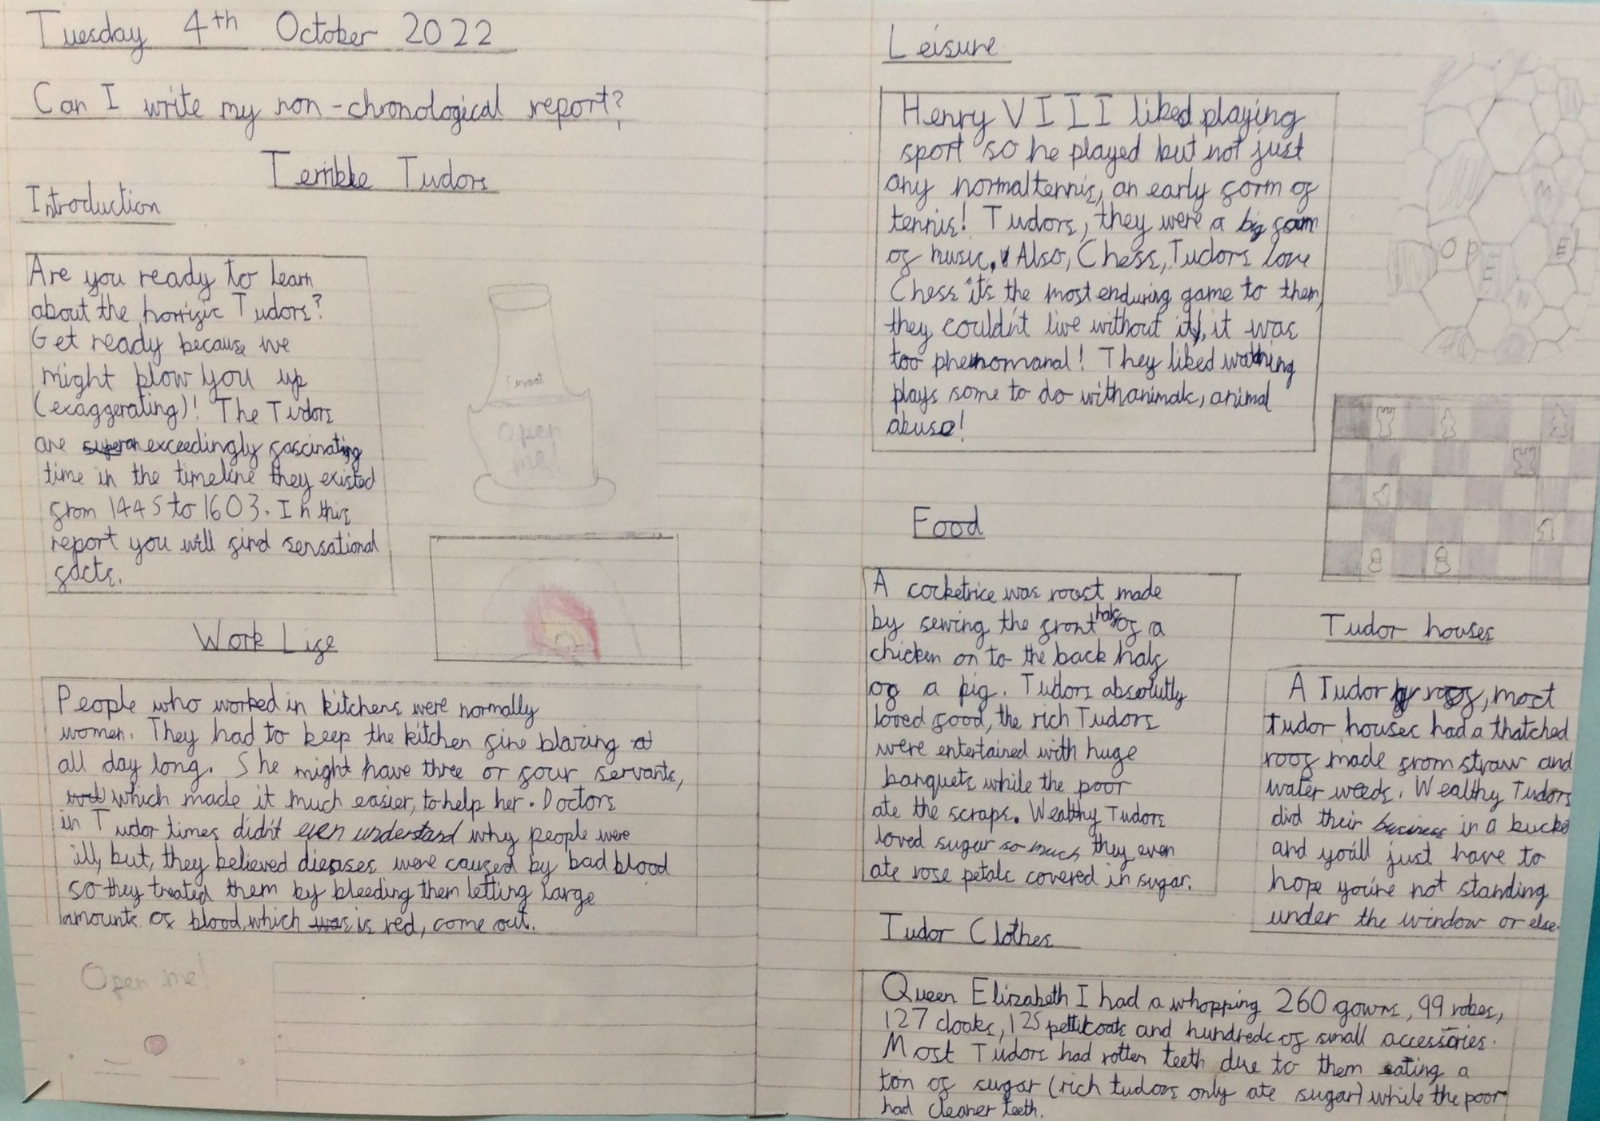 Tuesday 4th October 2022
Can I write my non-chronological report?
Terrible Tudors
Introduction
Are you ready to learn
about the horrific Tudors?
Get ready because we
might blow you up
(exaggerating)! The Tudors
are exceedingly fascinating
time in the timeline they existed
from 1445 to 1603. In this
report you will find sensational
facts.
i must
Open
me!
Work Life
People who worked in kitchens were normally
women. They had to keep the kitchen fire blazing
all day long. She might have three or four servants,
which made it much easier, to help her. Doctors
in Tudor times didn't even understand why people were
ill, but, they believed dieases were caused by bad blood
so they treated them by bleeding them letting large
amounts of blood, which is red, come out.
Open me!
Leisure
Henry VIII liked playing
sport so he played but not just
any normal tennis, an early form of
tennis! Tudors, they were a big
of music. Also, Chess, Tudors love
Chess it's the most enduring game to them,
they couldn't live without it, it was
too phenomanal! They liked watching
plays some to do with animals, animal
abuse!
OPEN ME
Food
A cocketrice was roast made
by sewing the front half of a
chicken on to the back half
of a pig. Tudors absolutly
loved food, the rich Tudors
were entertained with huge
banquets while the poor
ate the scraps. Wealthy Tudors
loved sugar so much they even
ate rose petals covered in sugar.
Tudor houses
A Tudor roof, most
tudor houses had a thatched
roof made from straw and
water weeds. Wealthy Tudors
did their business in a bucket
and you'll just have to
hope you're not standing
under the window or else.
Tudor Clothes
Queen Elizabeth I had a whopping 260 gowns, 99 robes,
127 cloaks, 125 petticoats and hundreds of small accessories.
Most Tudors had rotten teeth due to them eating a
ton of sugar (rich tudors only ate sugar) while the poor
had cleaner teeth.